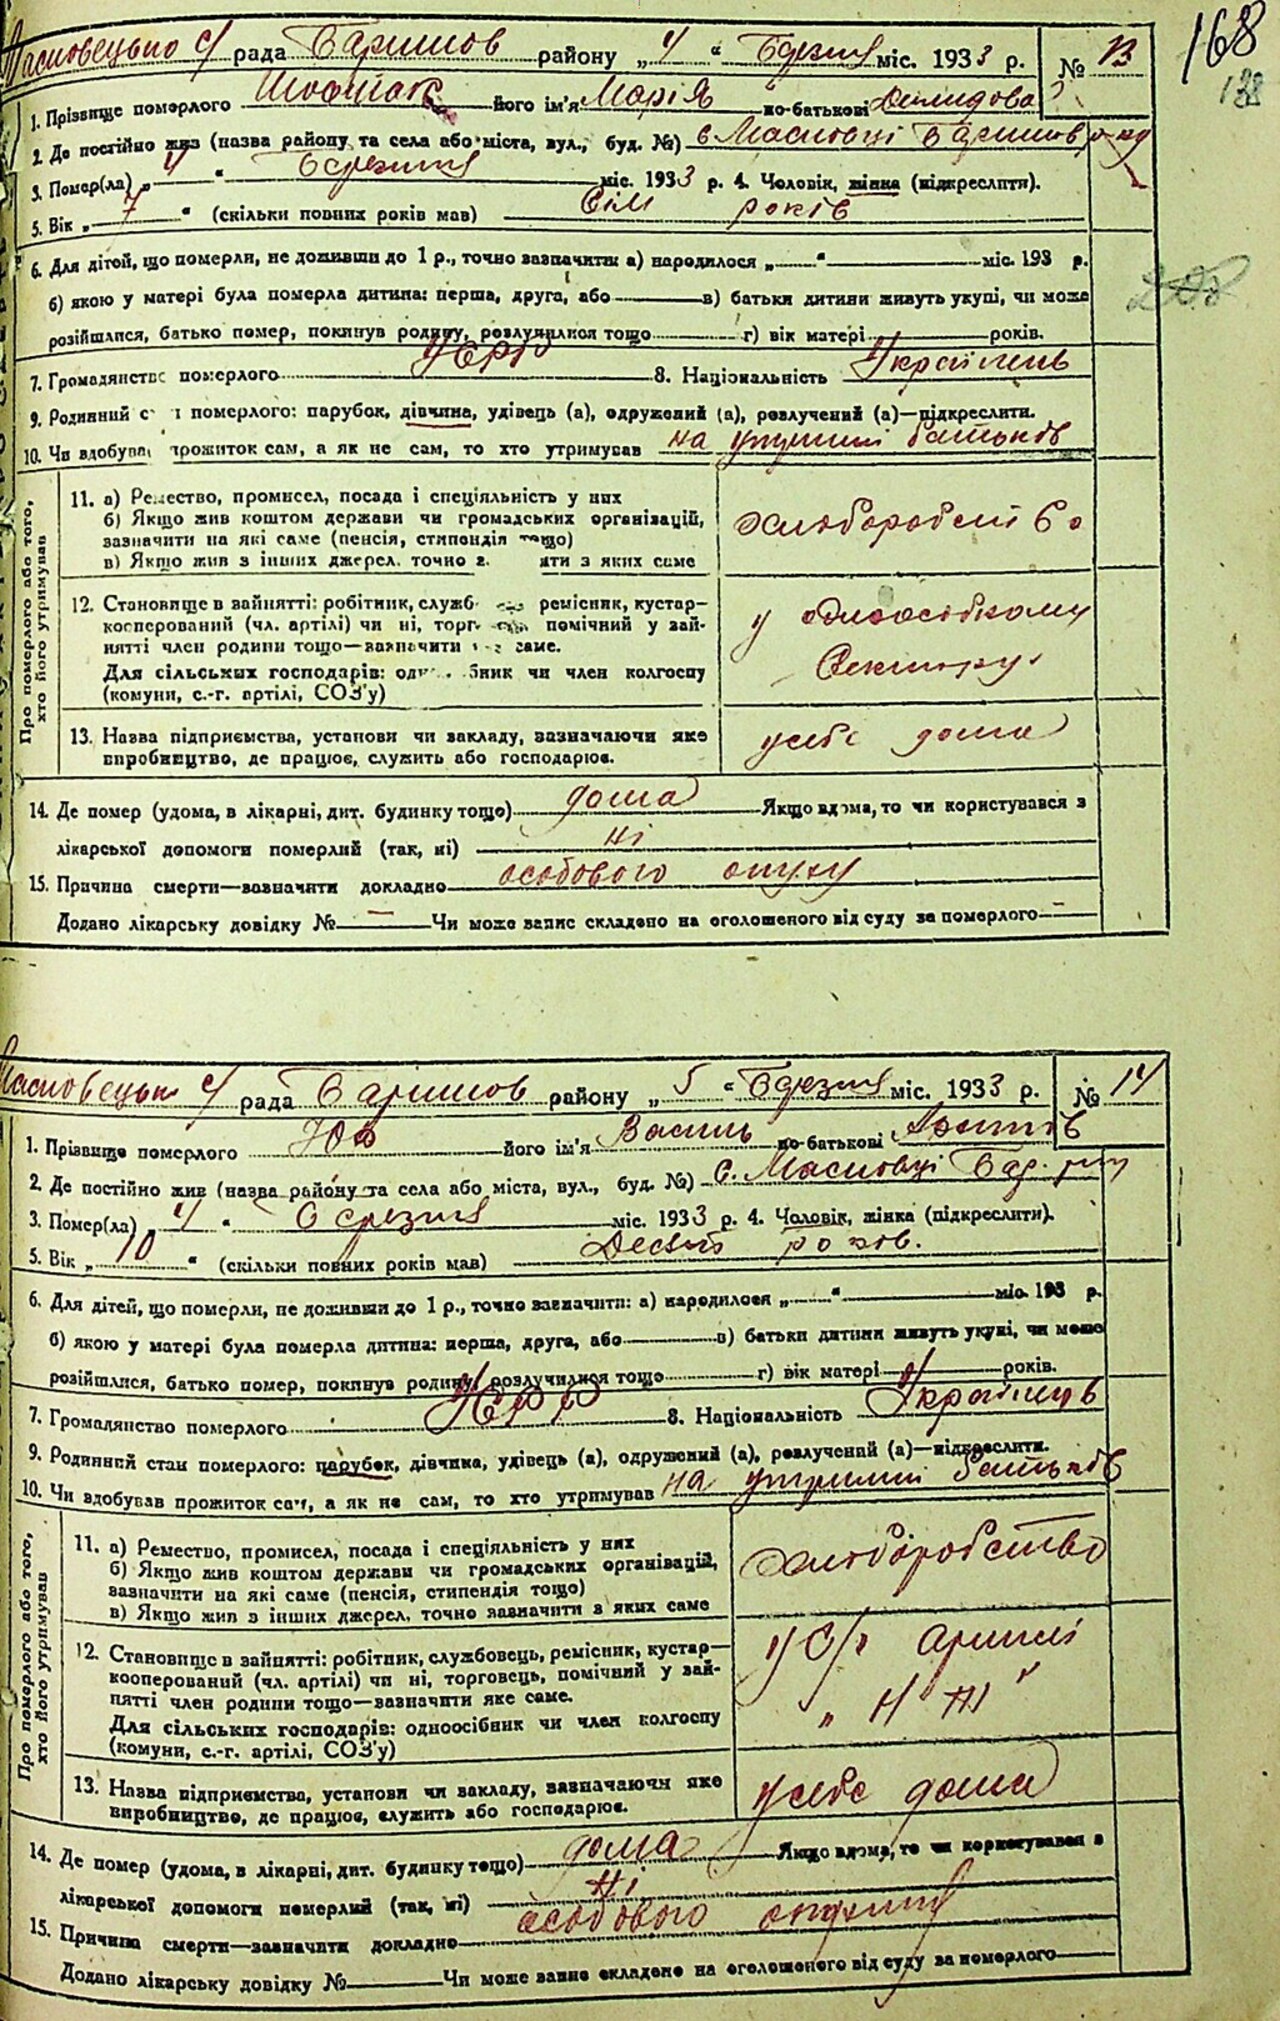 168
138
Масковецько с/ рада Баришов району „ 4 “ Березня міс. 1933 р. № 13
1. Прізвище померлого його ім'я Марія по-батькові Демидова
2. Де постійно жив (назва району та села або міста, вул., буд. №) с. Масковці Баришов. р-ну
3. Помер(ла) „ 4 “ березня міс. 1933 р. 4. Чоловік, жінка (підкреслити).
5. Вік „ 7 “ (скільки повних років мав) сім років
6. Для дітей, що померли, не доживши до 1 р., точно зазначити: а) народилося „ “ міс. 193 р.
б) якою у матері була померла дитина: перша, друга, або в) батьки дитини живуть укупі, чи може
розійшлися, батько помер, покинув родину, розлучилися тощо г) вік матері років.
7. Громадянство померлого УСРР 8. Національність Українець
9. Родинний с н померлого: парубок, дівчина, удівець (а), одружений (а), розлучений (а)—підкреслити.
10. Чи здобував прожиток сам, а як не сам, то хто утримував на утриманні батьків
Про померлого або того,
хто його утримував
11. а) Ремество, промисел, посада і спеціяльність у них
б) Якщо жив коштом держави чи громадських організацій,
зазначити на які саме (пенсія, стипендія тощо)
в) Якщо жив з інших джерел, точно з яти з яких саме
хліборобство
12. Становище в зайнятті: робітник, служб ремісник, кустар—
кооперований (чл. артілі) чи ні, торг помічний у зай-
нятті член родини тощо—зазначити саме.
Для сільських господарів: одн бник чи член колгоспу
(комуни, с.-г. артілі, СОЗ'у)
у одноосібному
сектору
13. Назва підприємства, установи чи закладу, зазначаючи яке
виробництво, де працює, служить або господарює.
у себе дома
14. Де помер (удома, в лікарні, дит. будинку тощо) дома Якщо вдома, то чи користувався з
лікарської допомоги померлий (так, ні) ні
15. Причина смерти—зазначити докладно особового опуху
Додано лікарську довідку № — Чи може запис складено на оголошеного від суду за померлого —
Масковецько с/ рада Баришов району „ 5 “ Березня міс. 1933 р. № 14
1. Прізвище померлого його ім'я Василь по-батькові
2. Де постійно жив (назва району та села або міста, вул., буд. №) с. Масковці Бар. р-ну
3. Помер(ла) „ 4 “ березня міс. 1933 р. 4. Чоловік, жінка (підкреслити).
5. Вік „ 10 “ (скільки повних років мав) Десять років.
6. Для дітей, що померли, не доживши до 1 р., точно зазначити: а) народилося „ “ міс. 193 р.
б) якою у матері була померла дитина: перша, друга, або в) батьки дитини живуть укупі, чи може
розійшлися, батько помер, покинув родину, розлучилися тощо г) вік матері років.
7. Громадянство померлого УСРР 8. Національність Українець
9. Родинний стан померлого: парубок, дівчина, удівець (а), одружений (а), розлучений (а)—підкреслити.
10. Чи здобував прожиток сам, а як не сам, то хто утримував на утриманні батьків
Про померлого або того,
хто його утримував
11. а) Ремество, промисел, посада і спеціяльність у них
б) Якщо жив коштом держави чи громадських організацій,
зазначити на які саме (пенсія, стипендія тощо)
в) Якщо жив з інших джерел, точно зазначити з яких саме
хліборобство
12. Становище в зайнятті: робітник, службовець, ремісник, кустар—
кооперований (чл. артілі) чи ні, торговець, помічний у зай-
нятті член родини тощо—зазначити яке саме.
Для сільських господарів: одноосібник чи член колгоспу
(комуни, с.-г. артілі, СОЗ'у)
у с/г артілі
13. Назва підприємства, установи чи закладу, зазначаючи яке
виробництво, де працює, служить або господарює.
у себе дома
14. Де помер (удома, в лікарні, дит. будинку тощо) дома Якщо вдома, то чи користувався з
лікарської допомоги померлий (так, ні) ні
15. Причина смерти—зазначити докладно особового
Додано лікарську довідку № Чи може запис складено на оголошеного від суду за померлого